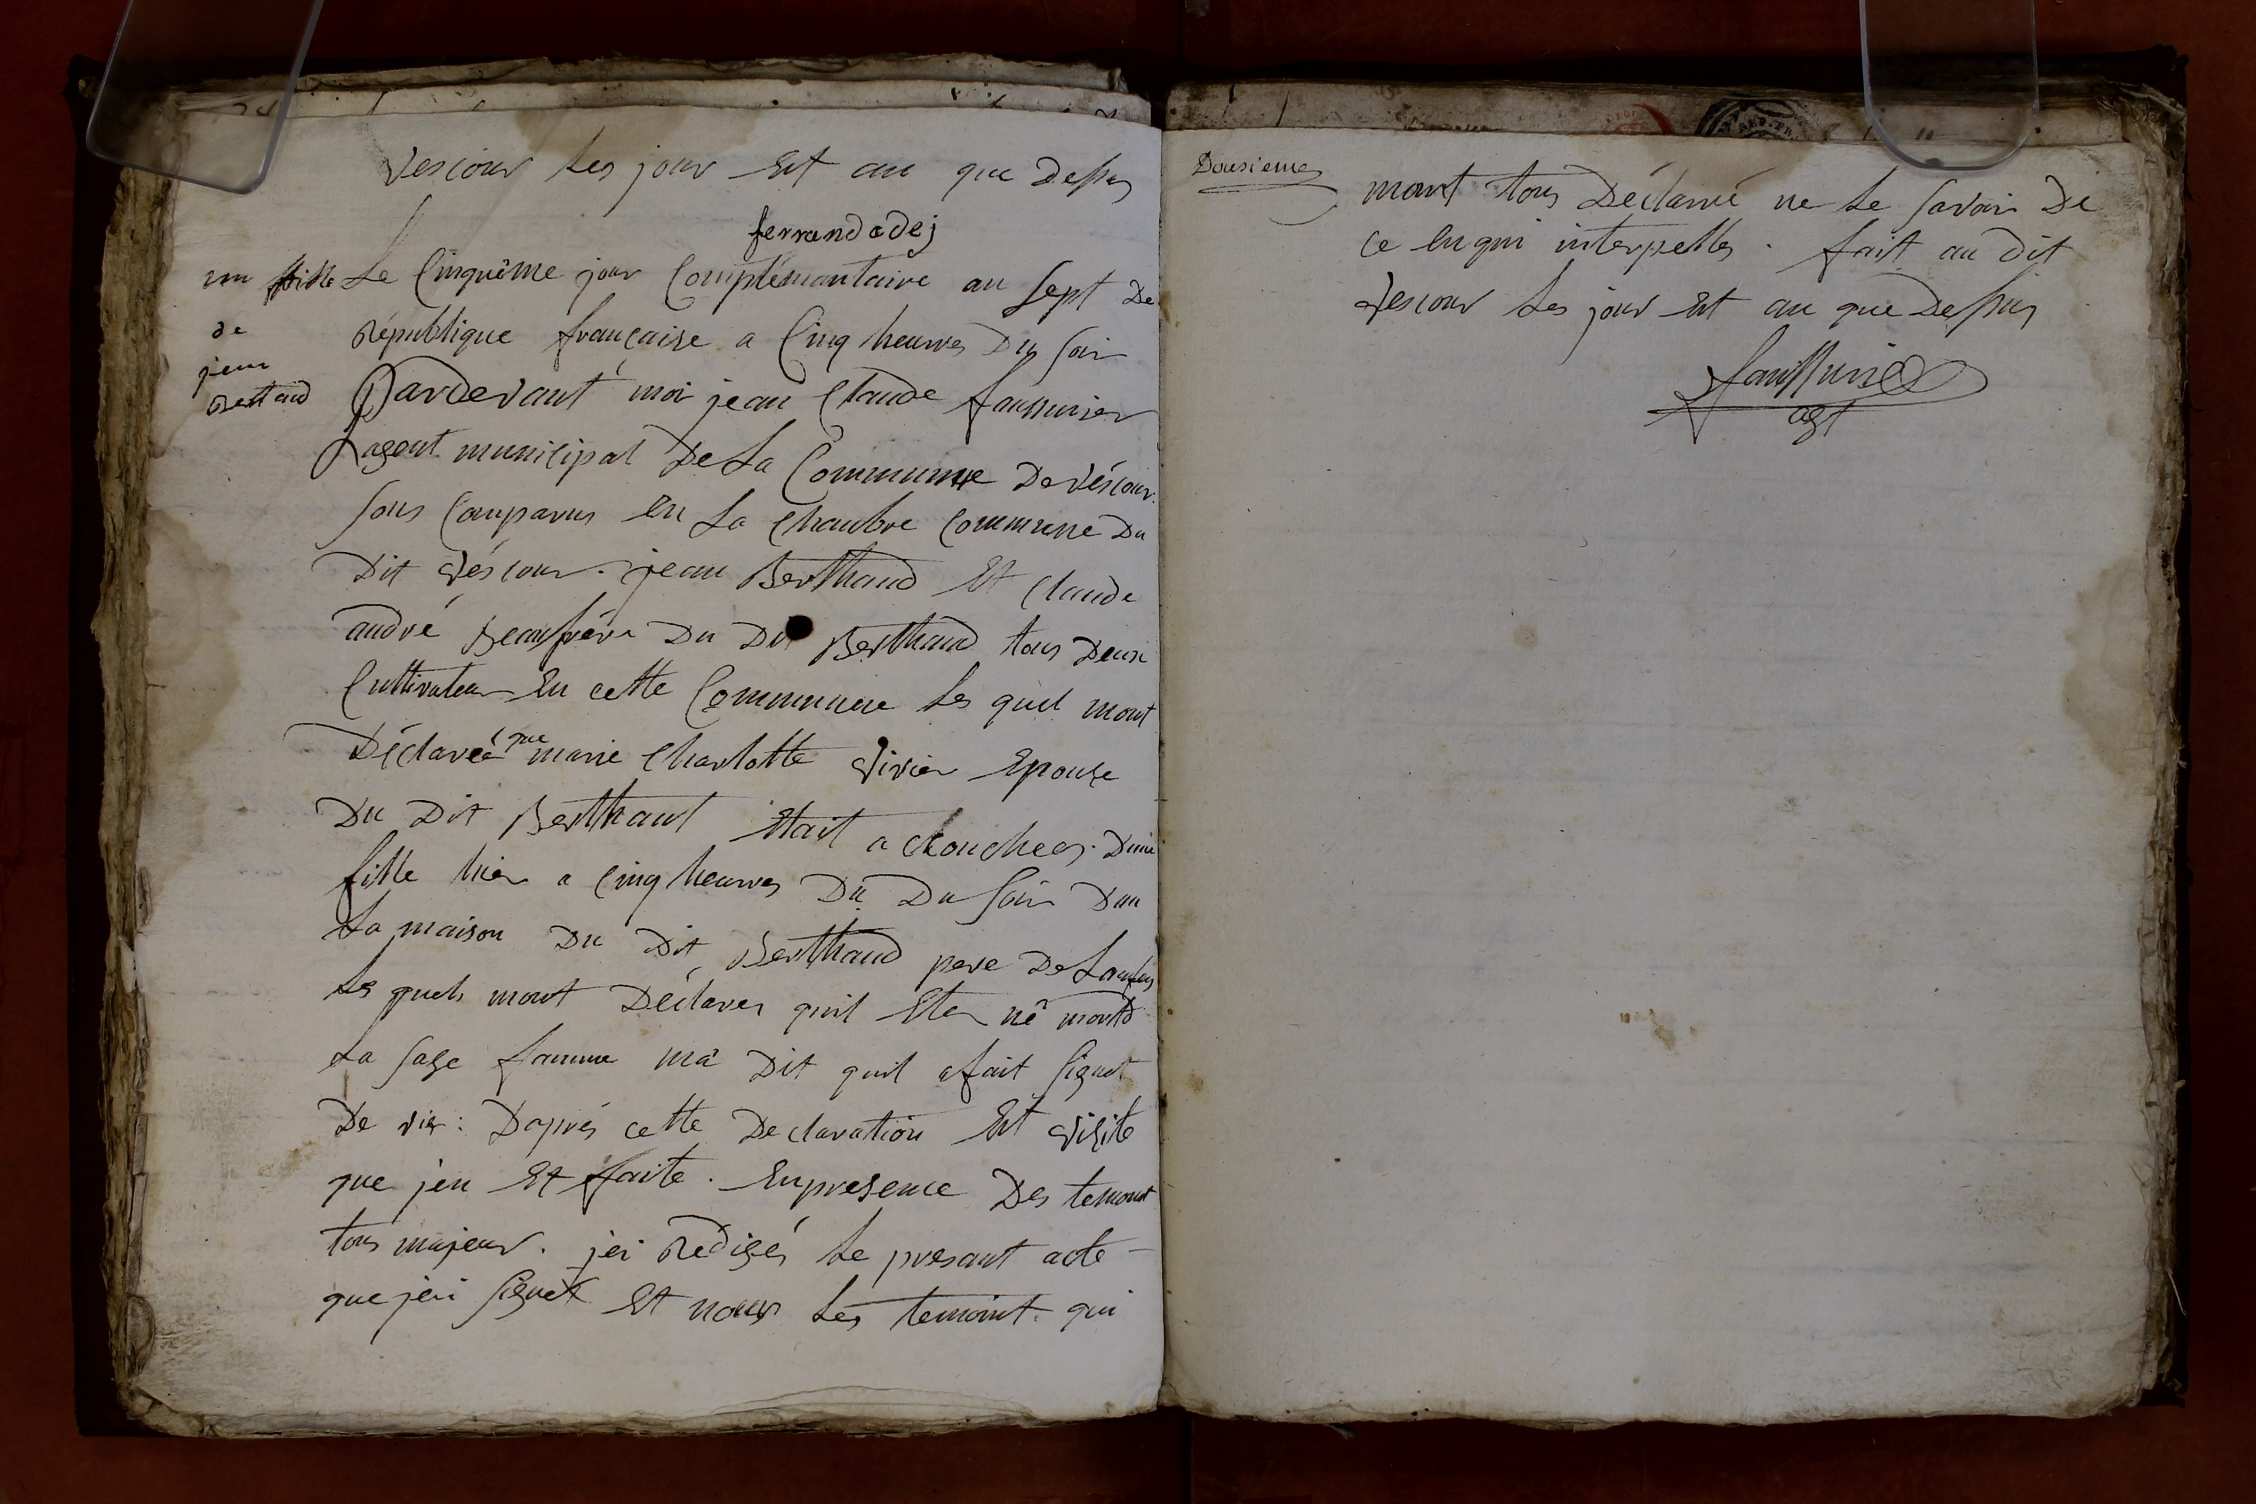 Vescour Les jour Et an que Dessus
ferrand adej
un fille
de
jean
Bertaud
Le Cinquième jour Complémantaire an sept De
République française a Cinq heures Du soir
Pardevant moi jean Claude faussurier
agent municipal De La Commune De Véscour.
sons Comparus En La Chambre Commune Du
Dit Véscour. jean Berthaud Et Claude
andré Beaufrére Du Dit Berthaud tous Deux
Cultivateur En cette Commune Les quel mont
Déclareé que marie Charlotte Vivier Epouse
Du Dit Berthaut Etait a chouchees. Dune
fille hier a Cinq heures Du Du soir Dan
La maison Du Dit Berthaud pere De Lanfen
Les quels mont Déclarer quil Eter né mort
La sage famme ma Dit quil a fait signet
De vie : Daprés cette Declaration Et visite
que jeu Et faite. En presence Des temoint
tous majeur. jei Redigés Le presant acte
que jéi signet Et nous Les temoint. qui
Dousieme
mont tous Déclarré ne Le savoir De
ce En qui interpelles. fait au Dit
Vescour Les jour Et an que Dessus
faussurier
agt